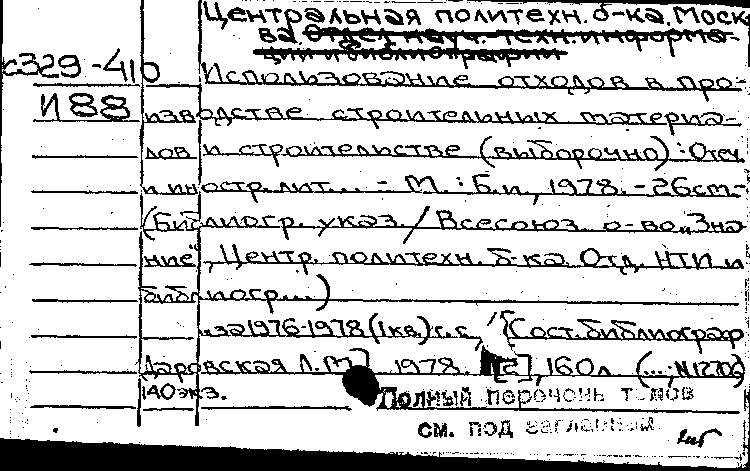 Центральная политехн. б-ка. Моск
ва. Отдел науч. техн. информа-
ции и библиографии
с329-410 Использование отходов в про-
И88 изводстве строительных материа-
лов и строительстве (выборочно): Отеч.
и иностр. лит... - М.: Б.и., 1978. - 26см-
(Библиогр. указ. / Всесоюз. о-во „Зна
ние", Центр. политехн. б-ка. Отд. НТИ и
библиогр...)
...за 1976-1978 (I кв.) г.г. / [Сост. библиограф
Даровская Л.М]. 1978. [2], 160л. (...;
140 экз.
Полный перечень томов
см. под заглавием